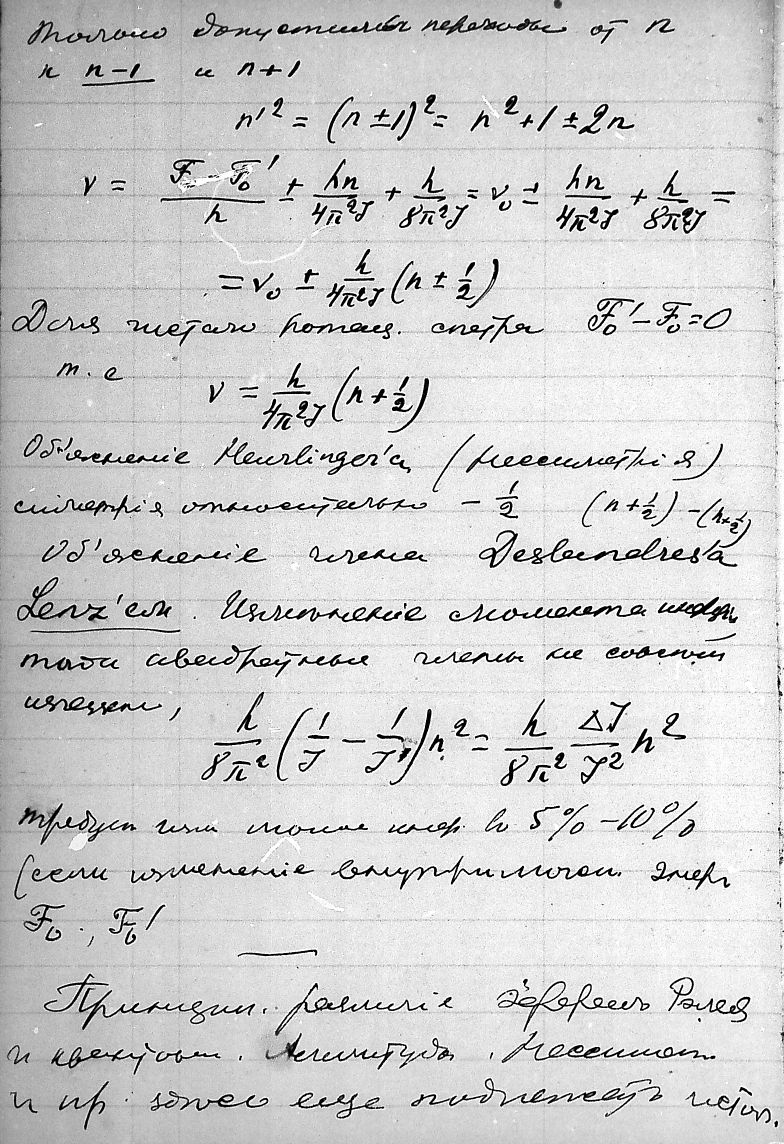 только допустимы переходы от n
к n-1 и n+1
n'² = (n ± 1)² = n² + 1 ± 2n
ν = (F - F₀')/h ± hn/4π²J + h/8π²J = ν₀ ± hn/4π²J + h/8π²J =
= ν₀ ± h/4π²J (n ± 1/2)
Для чистого ротац. спектра F₀' - F₀ = 0
т. е
ν = h/4π²J (n + 1/2)
Об'яснение Heurlinger'a (Ассиметрія)
симметрія относительно - 1/2 (n + 1/2) - (n + 1/2)
Об'ясненіе члена Deslandres'a
Lenz'ем. Измѣненіе момента инерц
тогда квадратные члены не совсем
исчезают,
h/8π² (1/J - 1/J') n² = h/8π² ΔJ/J² n²
требует изм момен инер. в 5% - 10%
(если изменение внутримолек. энерг
F₀ ; F₀'
Принцип. различіе Рэлея
и квантовым. Амплитуды. Ассимет.
и пр. здесь еще подлежатъ